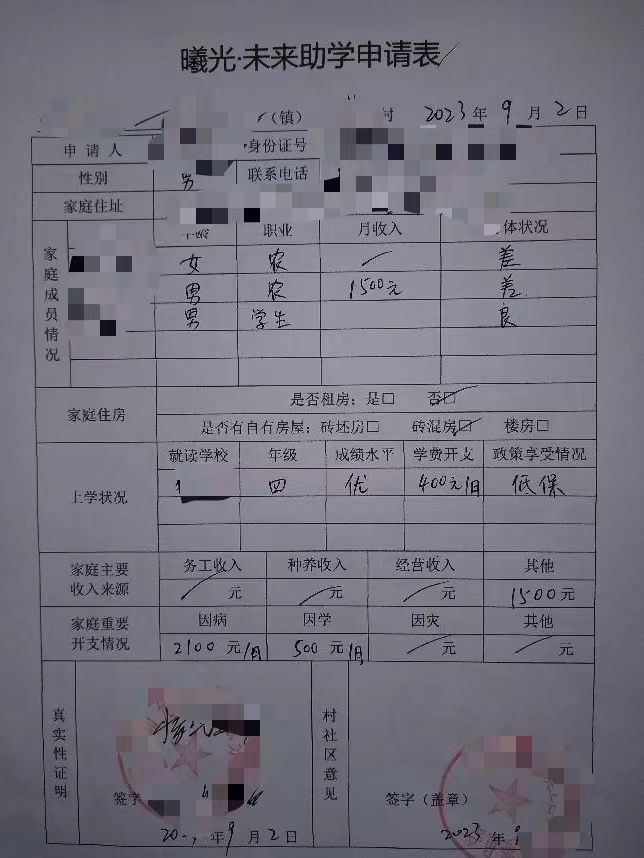 曦光·未来助学申请表
(镇) 村 2023年9月2日
申请人 身份证号
性别 男 联系电话
家庭住址
家庭成员情况 年龄 职业 月收入 体状况
女 农 差
男 农 1500元 差
男 学生 良
家庭住房 是否租房：是□ 否☑
是否有自有房屋：砖坯房□ 砖混房☑ 楼房□
上学状况 就读学校 年级 成绩水平 学费开支 政策享受情况
四 优 400元/月 低保
家庭主要收入来源 务工收入 种养收入 经营收入 其他
元 元 元 1500元
家庭重要开支情况 因病 因学 因灾 其他
2100元/月 500元/月 元 元
真实性证明 村社区意见
签字 签字（盖章）
20 年9月2日 2023年9